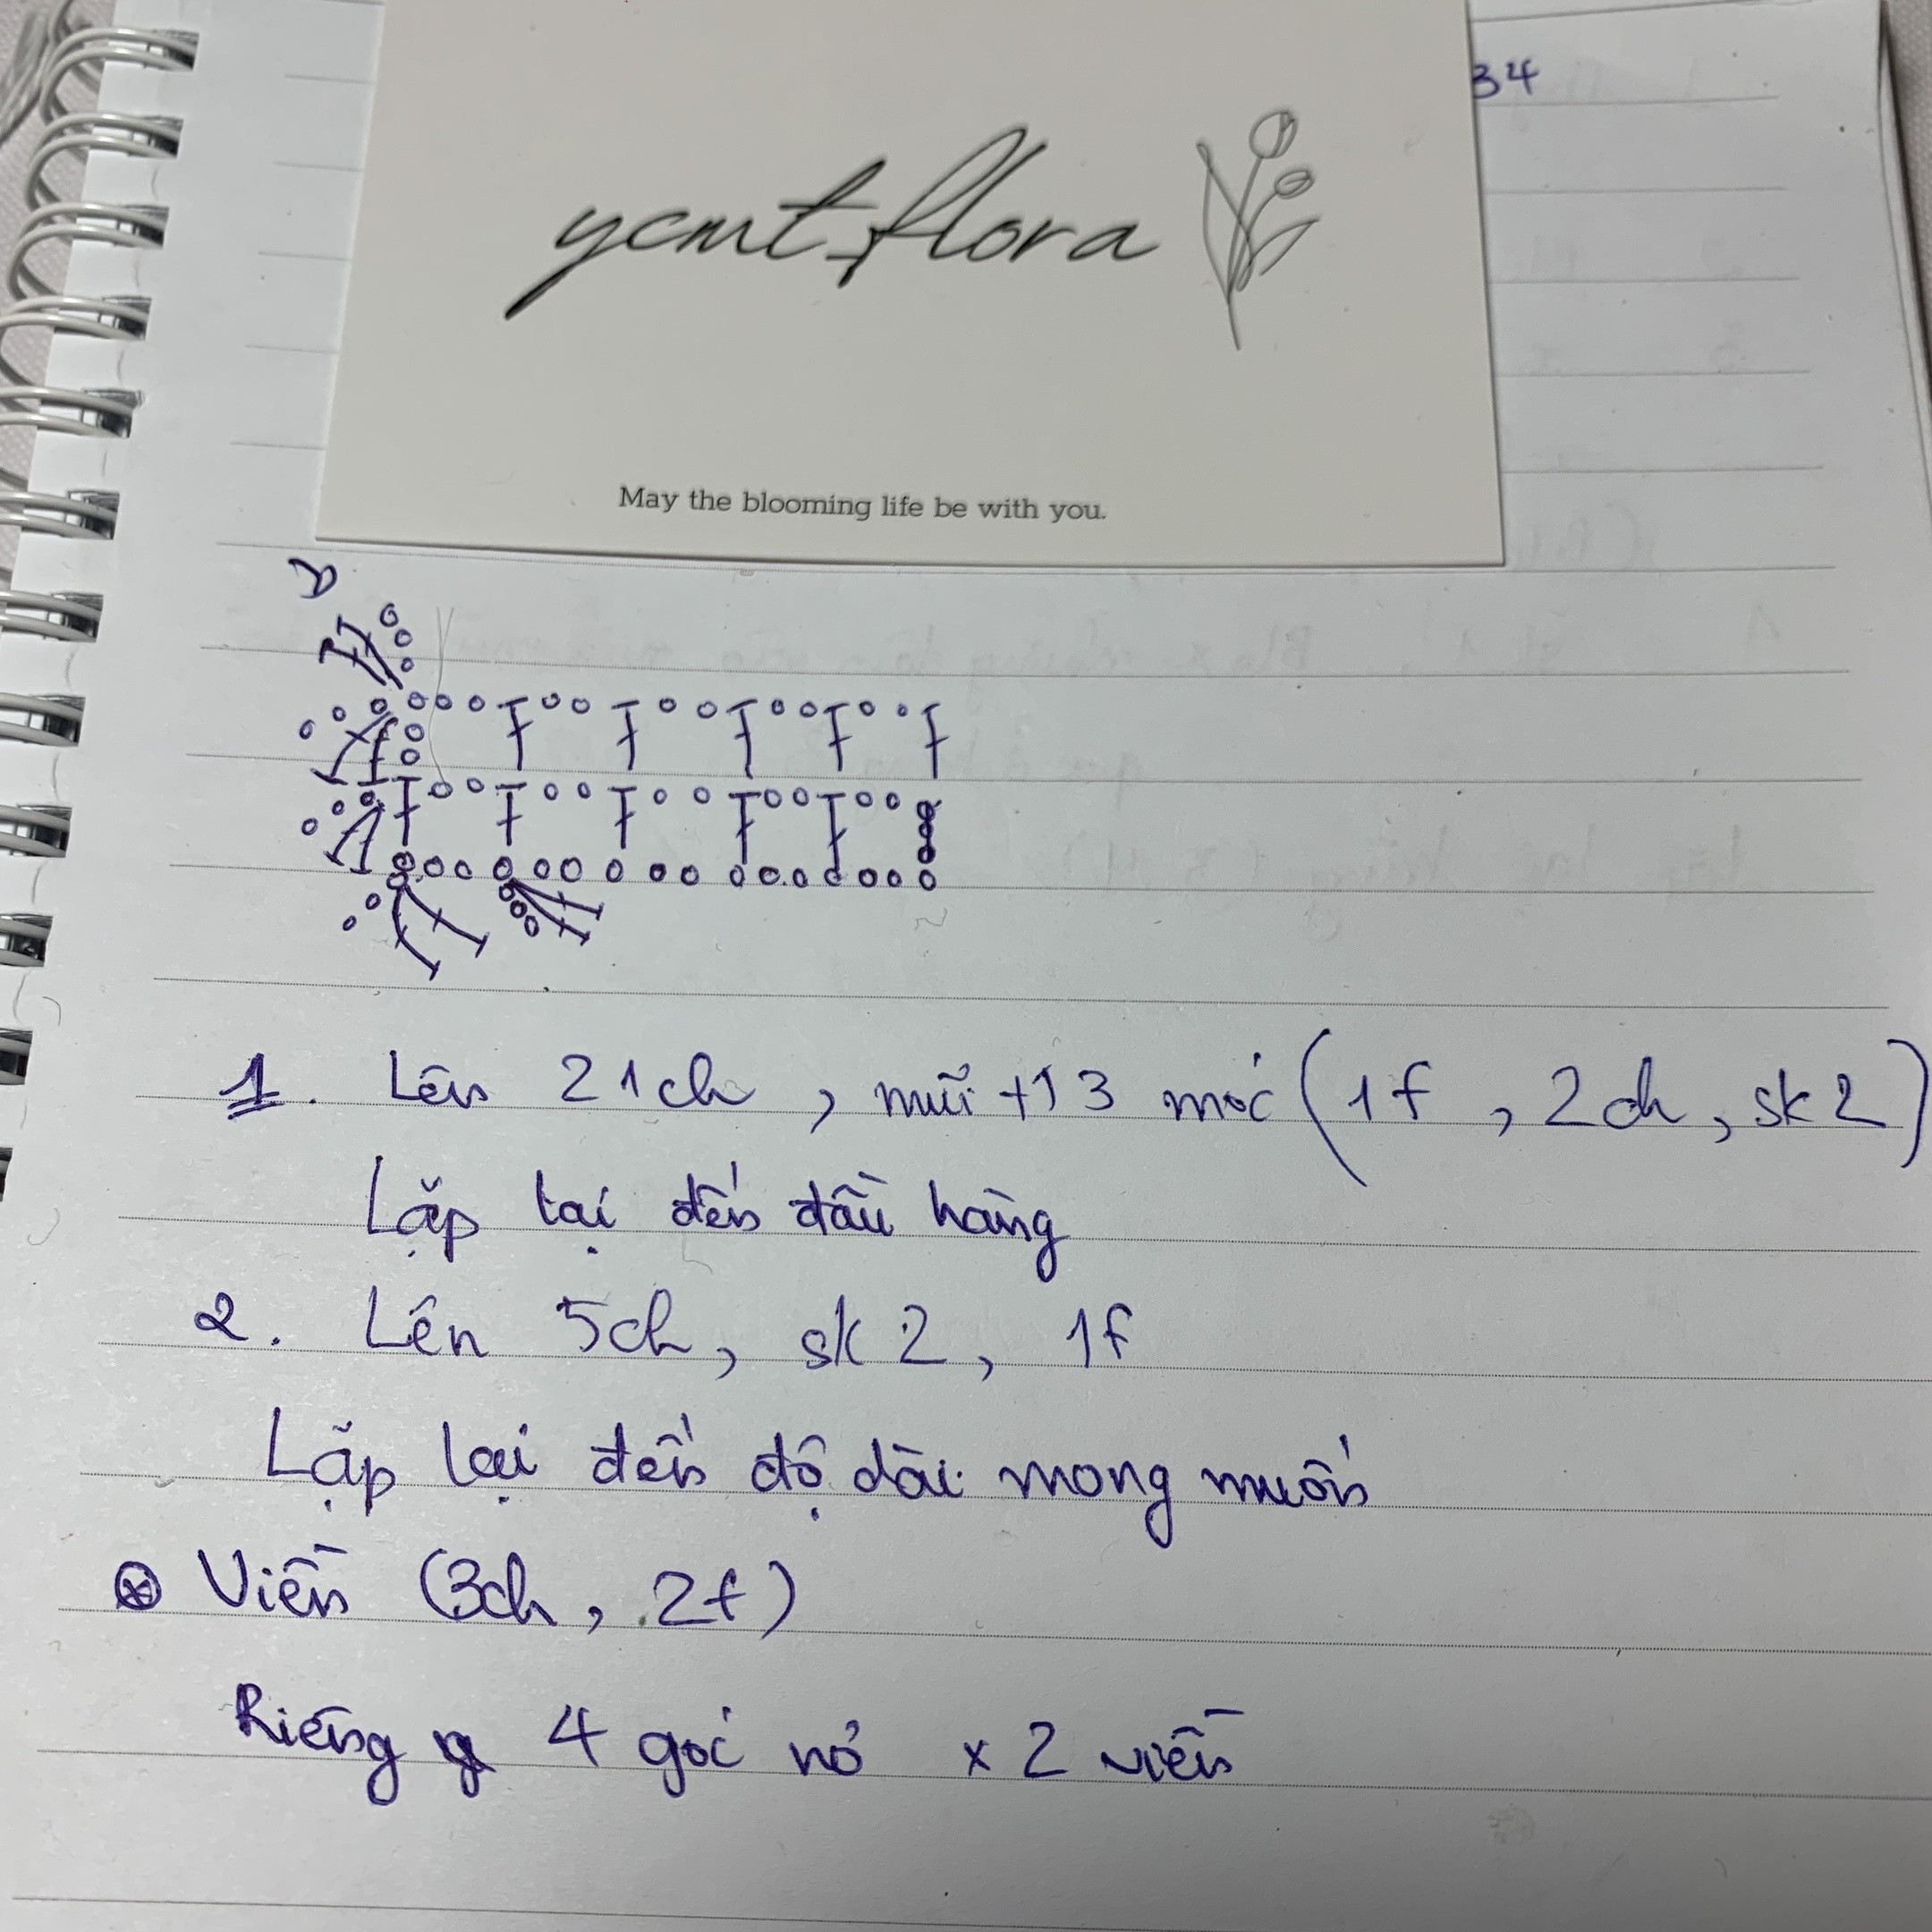 34
ycmt.flora
May the blooming life be with you.
1. Lên 21ch, mũi t13 móc (1F, 2ch, sk2)
Lặp lại đến đầu hàng
2. Lên 5ch, sk 2, 1F
Lặp lại đến độ dài mong muốn
Viền (3ch, 2F)
Riêng 4 góc nở x 2 viền